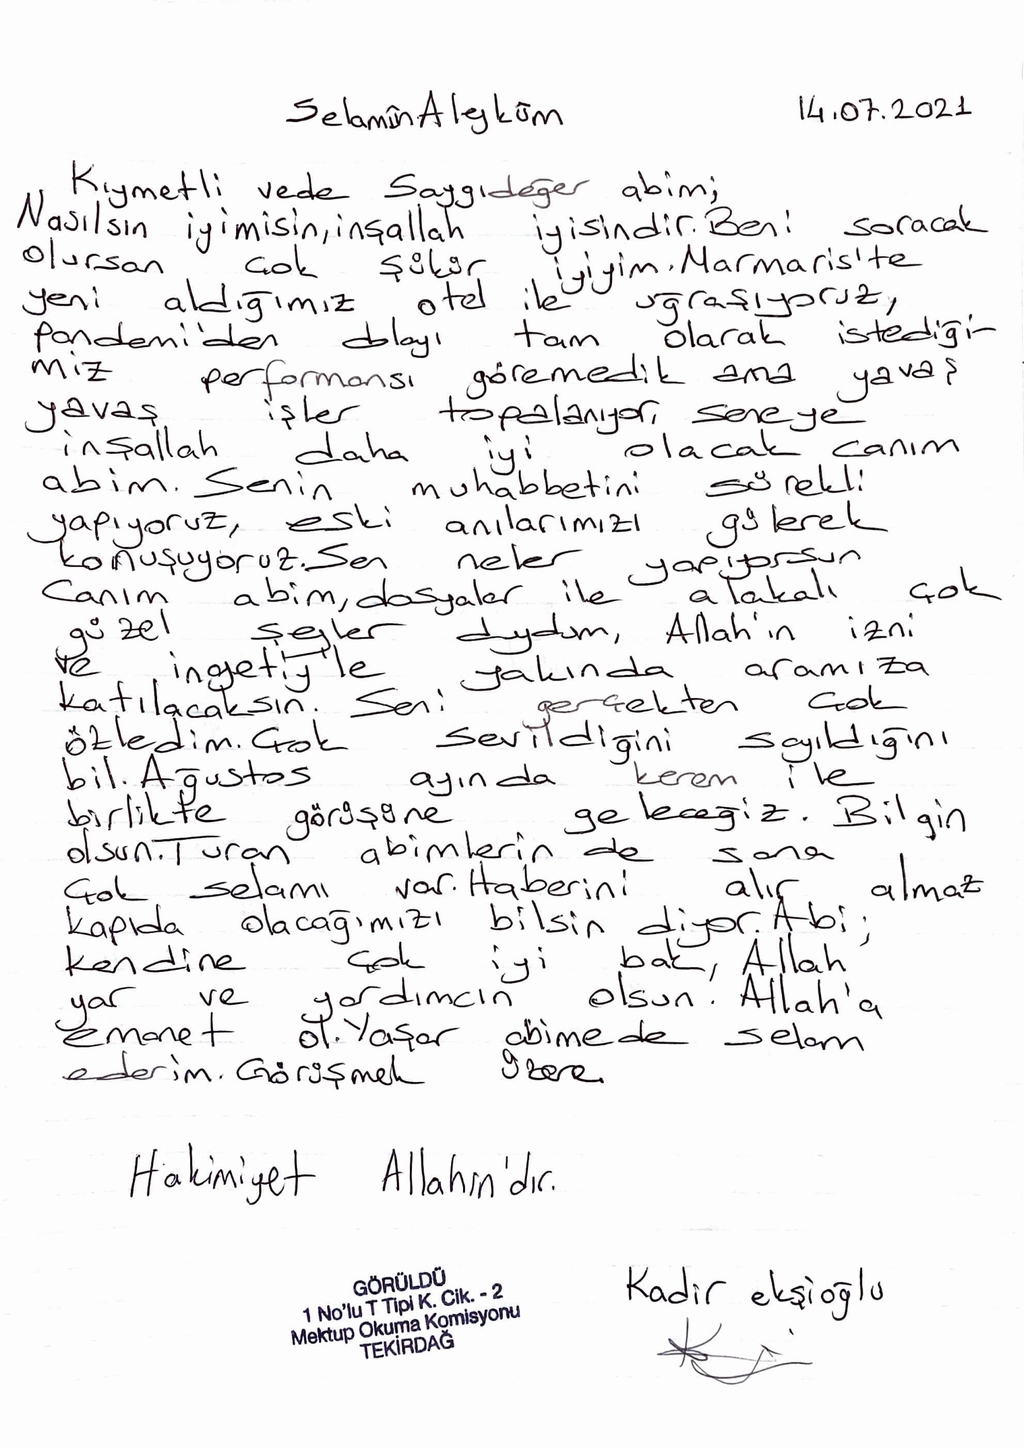 Selamîn Aleyküm 14.07.2021
Kıymetli vede Saygıdeğer abim;
Nasılsın iyimisin, inşallah iyisindir. Beni soracak
olursan Çok şükür iyiyim. Marmaris'te
yeni aldığımız otel ile uğraşıyoruz,
pandemi'den dolayı tam olarak istediği-
miz performansı göremedik ama yavaş
yavaş işler topalanıyor, seneye
inşallah daha iyi olacak canım
abim. Senin muhabbetini sürekli
yapıyoruz, eski anılarımızı gülerek
konuşuyoruz. Sen neler yapıyorsun
Canım abim, dosyalar ile alakalı Çok
güzel şeyler duydum, Allah'ın izni
ve ile yakında aramıza
katılacaksın. Seni gerçekten Çok
özledim. Çok Sevildiğini sayıldığını
bil. Ağustos ayında kerem ile
birlikte görüşüne geleceğiz. Bilgin
olsun. Turan abimlerin de sana
Çok selamı var. Haberini alır almaz
kapıda olacağımızı bilsin diyor. Abi;
kendine Çok iyi bak, Allah
yar ve yardımcın olsun. Allah'a
emanet ol. Yaşar abimede selam
ederim. Görüşmek üzere.
Hakimiyet Allahın'dır.
Kadir ekşioğlu
GÖRÜLDÜ
1 No'lu T Tipi K. Cik. - 2
Mektup Okuma Komisyonu
TEKİRDAĞ